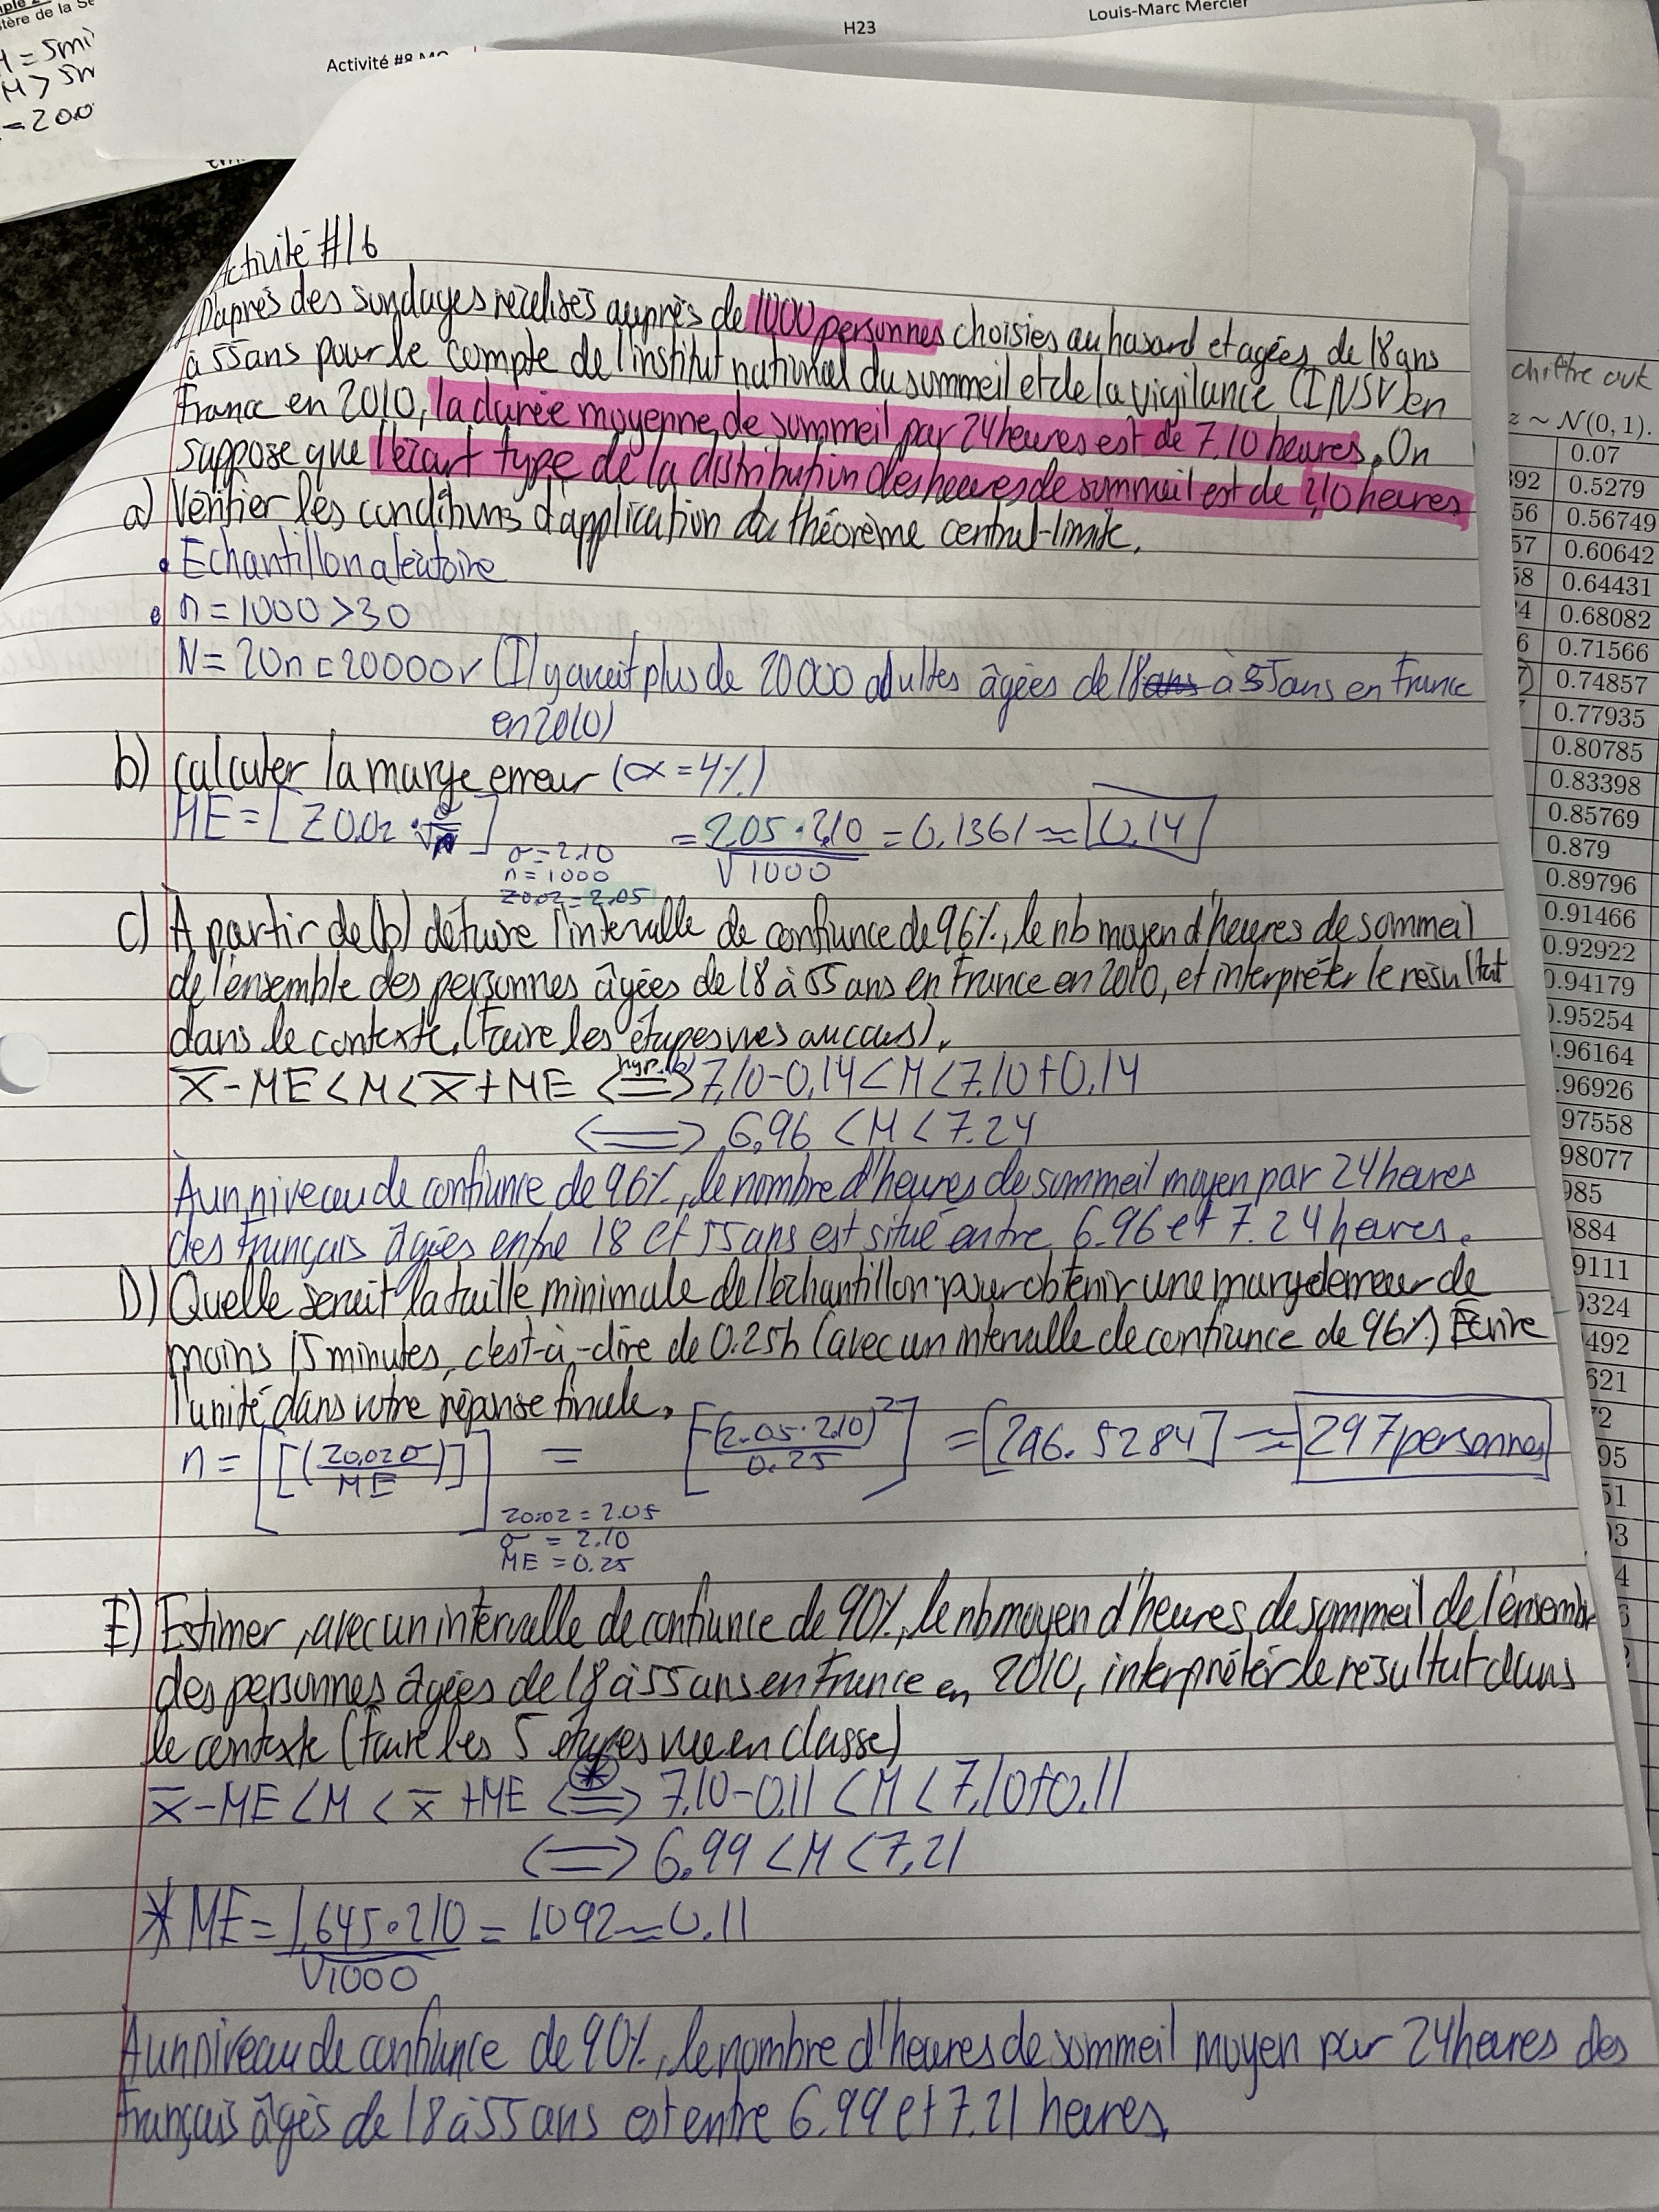 H23
Louis-Marc Mercier
Activité #8
= 5mi
M > 5m
= 200
Activité #16
D'après des sondages réalisés auprès de 1000 personnes choisies au hasard et agées de 18 ans
à 55 ans pour le compte de l'institut national du sommeil et de la vigilance (INSV) en
France en 2010, la durée moyenne de sommeil par 24 heures est de 7,10 heures. On
suppose que l'écart type de la distribution des heures de sommeil est de 2,10 heures
a) Vérifier les conditions d'application du théorème central-limite.
• Echantillon aléatoire
• n = 1000 > 30
N = 20n = 20000 ✓ (Il y avait plus de 20 000 adultes âgées de 18 ans à 55 ans en France
en 2010)
b) Calculer la marge erreur (α = 4%)
ME = [Z0.02 · σ/√n] = 2.05 · 2,10/√1000 = 0.1361 ≈ 0.14
σ = 2.10
n = 1000
Z0.02 = 2.05
c) À partir de (b) déduire l'intervalle de confiance de 96%, le nb moyen d'heures de sommeil
de l'ensemble des personnes âgées de 18 à 55 ans en France en 2010, et interpréter le résultat
dans le contexte. (Faire les étapes vues au cours).
x̄ - ME < M < x̄ + ME <=> hyp. (b) 7,10 - 0,14 < M < 7.10 + 0.14
<=> 6,96 < M < 7.24
À un niveau de confiance de 96%, le nombre d'heures de sommeil moyen par 24 heures
des français âgées entre 18 et 55 ans est situé entre 6.96 et 7.24 heures.
D) Quelle serait la taille minimale de l'échantillon pour obtenir une marge d'erreur de
moins 15 minutes, c'est-à-dire de 0.25h (avec un intervalle de confiance de 96%) Écrire
l'unité dans votre réponse finale.
n = [[(Z0.02σ/ME)]] = [(2.05 · 2.10/0.25)²] = [296.5284] ≈ 297 personnes
Z0.02 = 2.05
σ = 2.10
ME = 0.25
E) Estimer, avec un intervalle de confiance de 90%, le nb moyen d'heures de sommeil de l'ensemble
des personnes âgées de 18 à 55 ans en France en 2010, interpréter le résultat dans
le contexte (faire les 5 étapes vue en classe)
x̄ - ME < M < x̄ + ME <=> * 7.10 - 0.11 < M < 7,10 + 0.11
<=> 6.99 < M < 7,21
* ME = 1,645 · 2,10/√1000 = .1092 ≈ 0.11
À un niveau de confiance de 90%, le nombre d'heures de sommeil moyen par 24 heures des
français âgés de 18 à 55 ans est entre 6.99 et 7.21 heures.
chiffre
z ~ N(0, 1).
0.07
392 0.5279
56 0.56749
57 0.60642
58 0.64431
4 0.68082
6 0.71566
0.74857
0.77935
0.80785
0.83398
0.85769
0.879
0.89796
0.91466
0.92922
0.94179
0.95254
.96164
.96926
97558
98077
985
9884
9111
9324
492
621
72
95
51
03
4